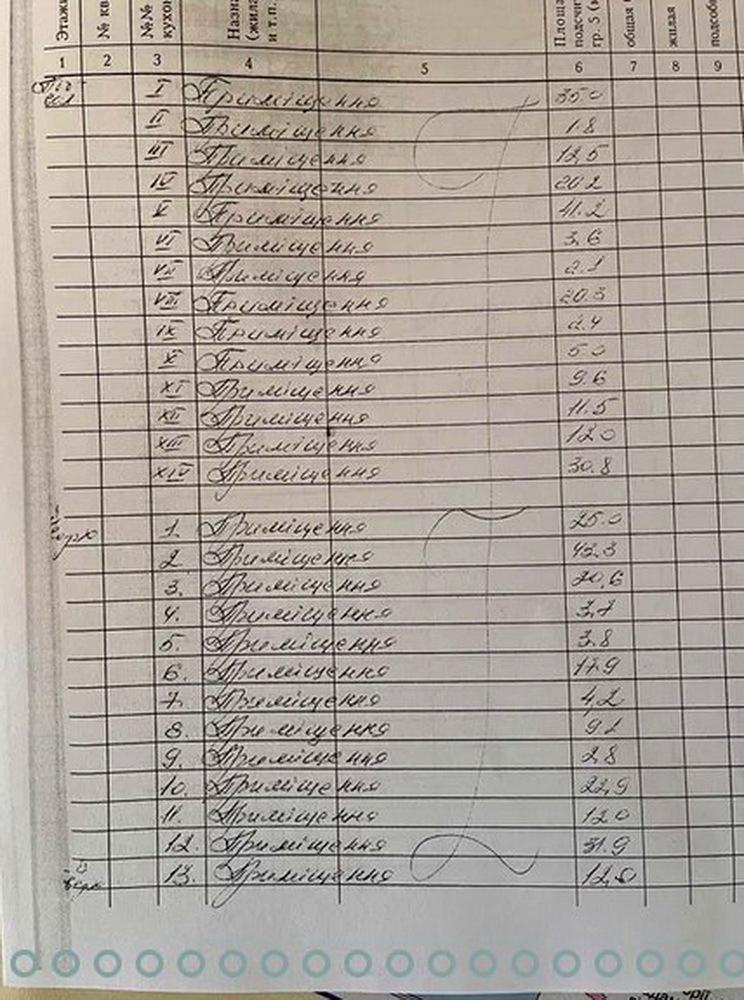 Этажи № кв №№ кухон Назна (жила и т.п. Площа подсчит гр. 5 (в общая жилая подсоб
1 2 3 4 5 6 7 8 9
I Приміщення 35.0
II Приміщення 1.8
III Приміщення 12,5
IV Приміщення 20.2
V Приміщення 41.2
VI Приміщення 3.6
VII Приміщення 2.1
VIII Приміщення 20.3
IX Приміщення 2.4
X Приміщення 5.0
XI Приміщення 9.6
XII Приміщення 11.5
XIII Приміщення 12.0
XIV Приміщення 30.8
1. Приміщення 25.0
2. Приміщення 43.3
3. Приміщення 20,6
4. Приміщення 3,7
5. Приміщення 3.8
6. Приміщення 17.9
7. Приміщення 4,2
8. Приміщення 9.1
9. Приміщення 2,8
10. Приміщення 22,9
11. Приміщення 12.0
12. Приміщення 31.9
13. Приміщення 12,0